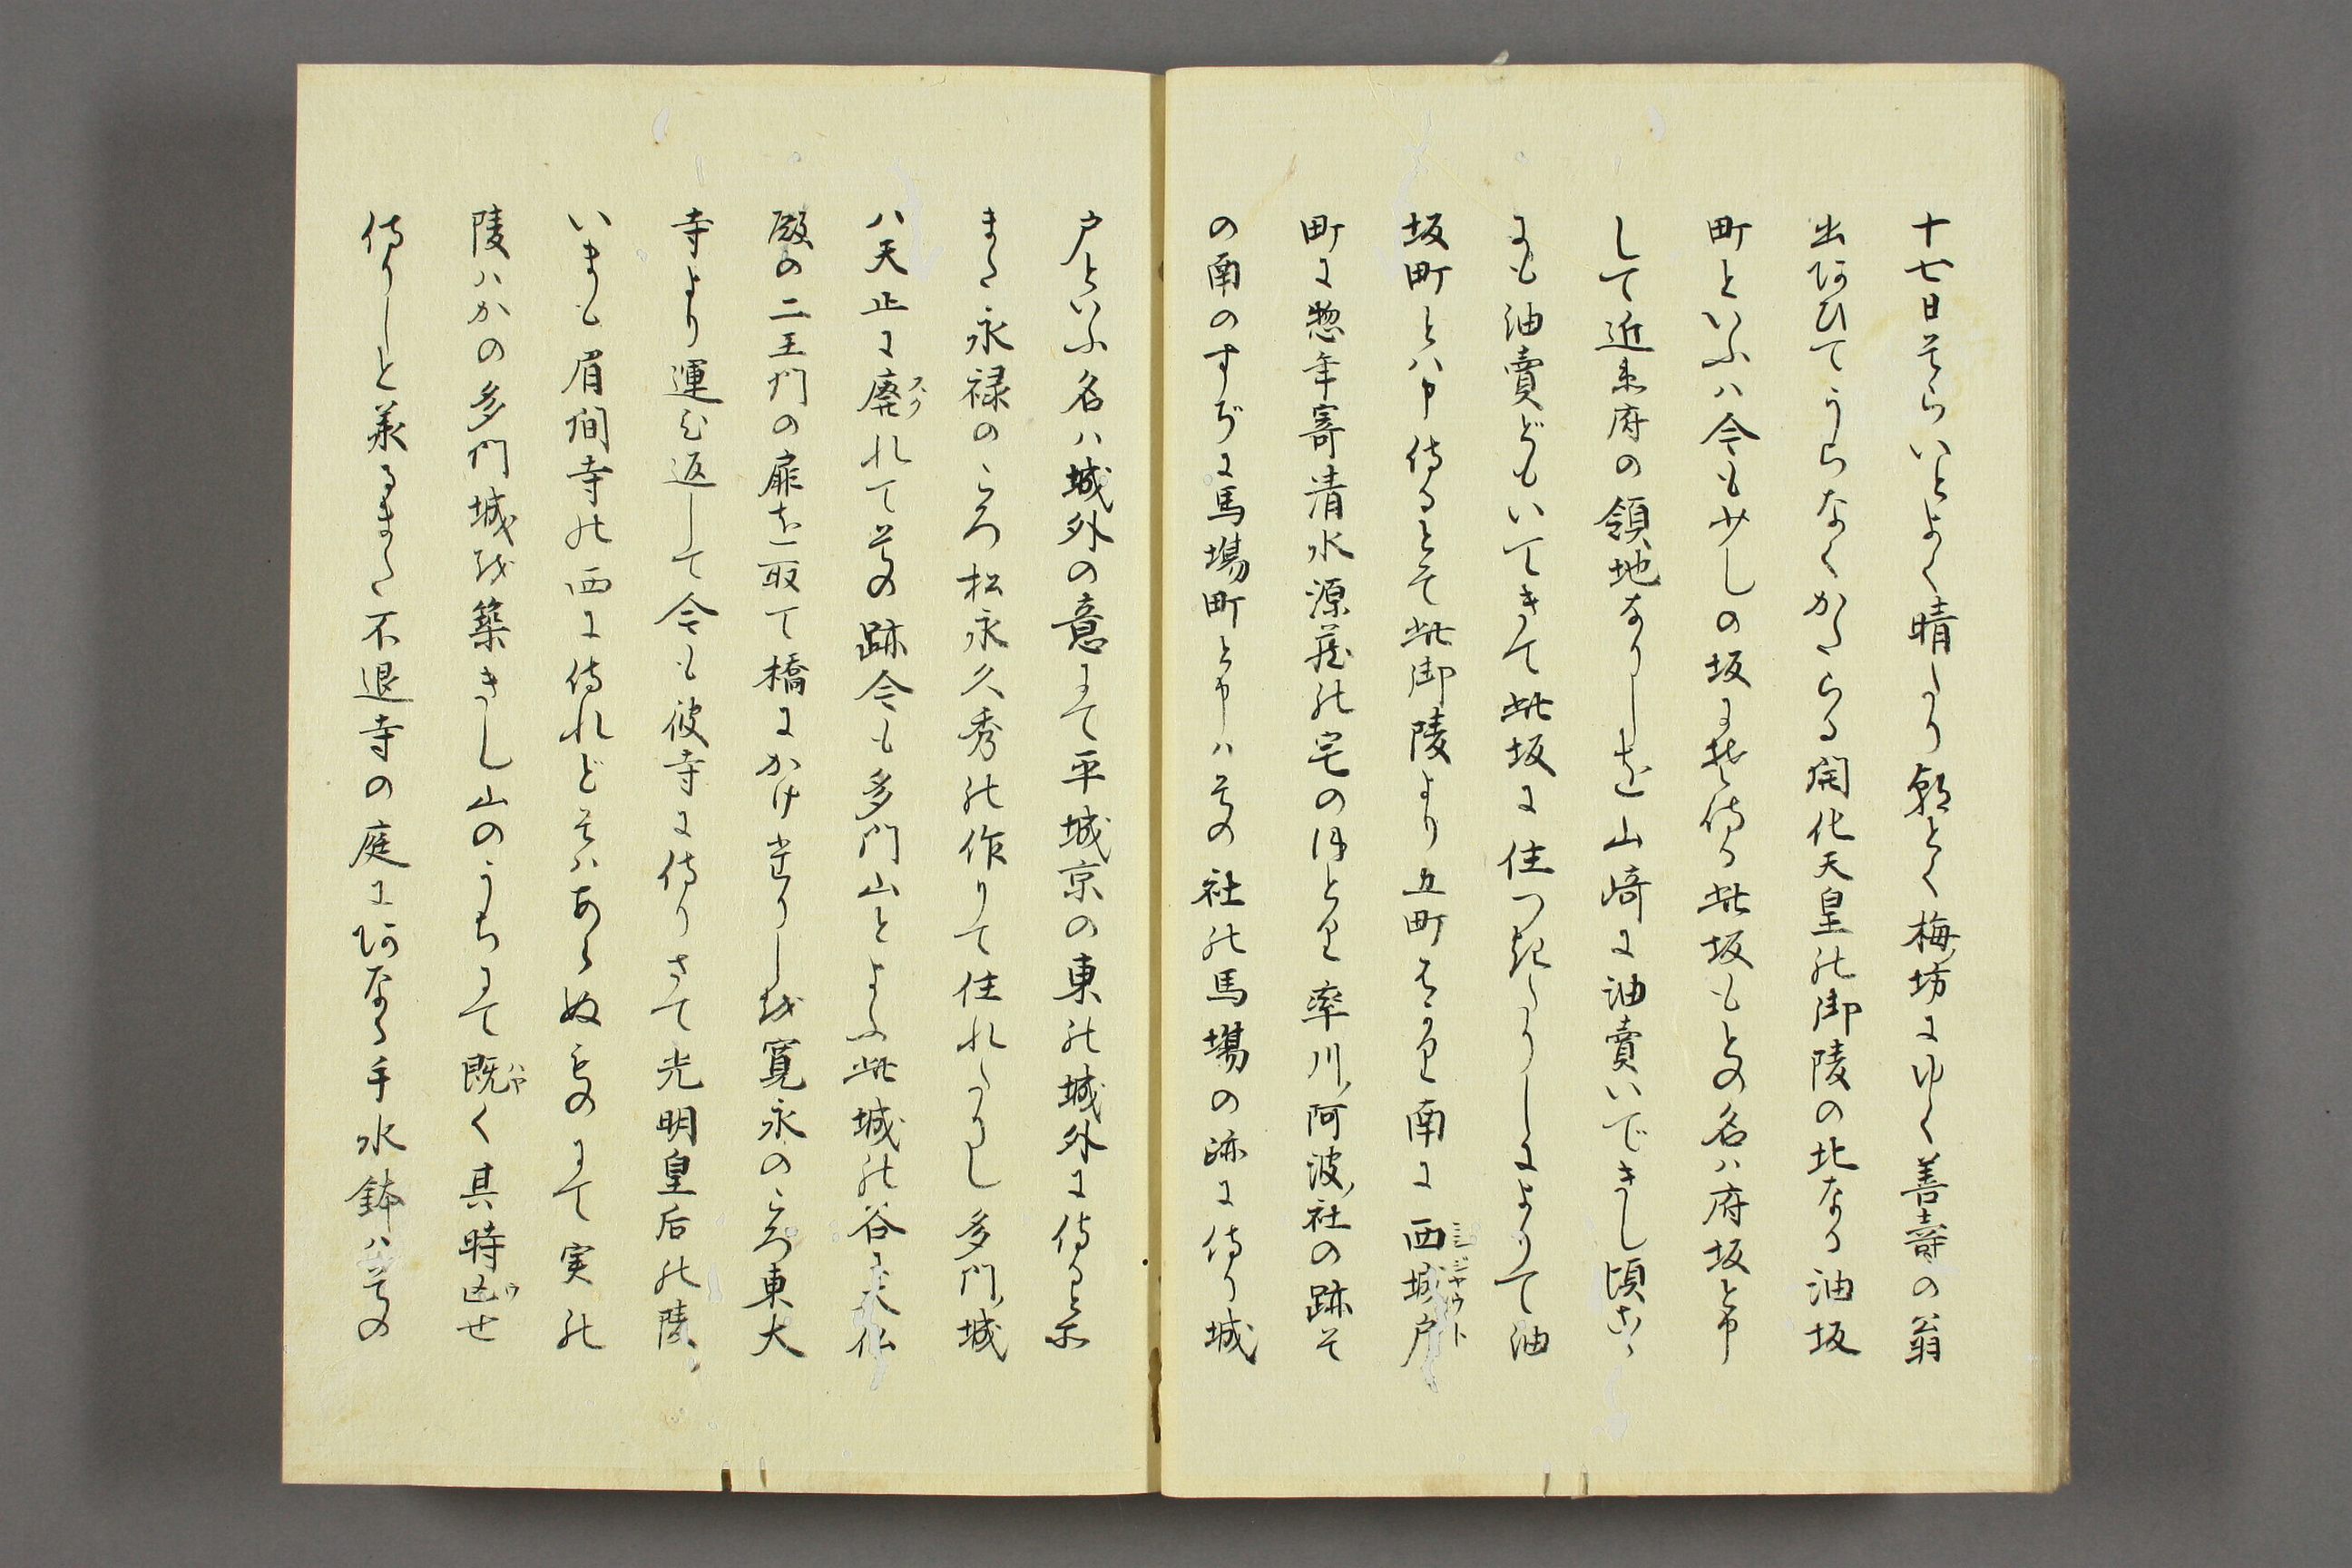 十七日そらいとよく晴たり朝とく梅坊にゆく善壽の翁
出阿ひてうらなくかたらる開化天皇能御陵の北なる油坂
町といふハ今も少しの坂にて侍る此坂もとの名ハ府坂と申
して近來府の領地なりしを山﨑に油賣いでまし頃こゝ
にも油賣どもいてきて此坂に住つきたりしによりて油
坂町とハ申侍るとそ此御陵より五町はかり南に西城戸
町に惣年寄清水源蔵能宅のほとり率川阿波社の跡そ
の南のすぢに馬場町と申ハその社能馬場の跡に侍り城
戸といふ名ハ城外の意にて平城京の東能城外に侍ると
また永禄のころ松永久秀能作りて住れたりし多門城
ハ天正に廃れてその跡今も多門山とよふ此城能谷に大仏
殿の二王門の扉を取て橋にかけたりしを寛永のころ東大
寺より運ひ返して今も彼寺に侍りさて光明皇后能陵
いまも眉間寺能西に侍れどそハあらぬものにて実能
陵ハかの多門城を築きし山のうちにて既く其時亡せ
侍りしと承るまた不退寺の庭に阿なる手水鉢ハその